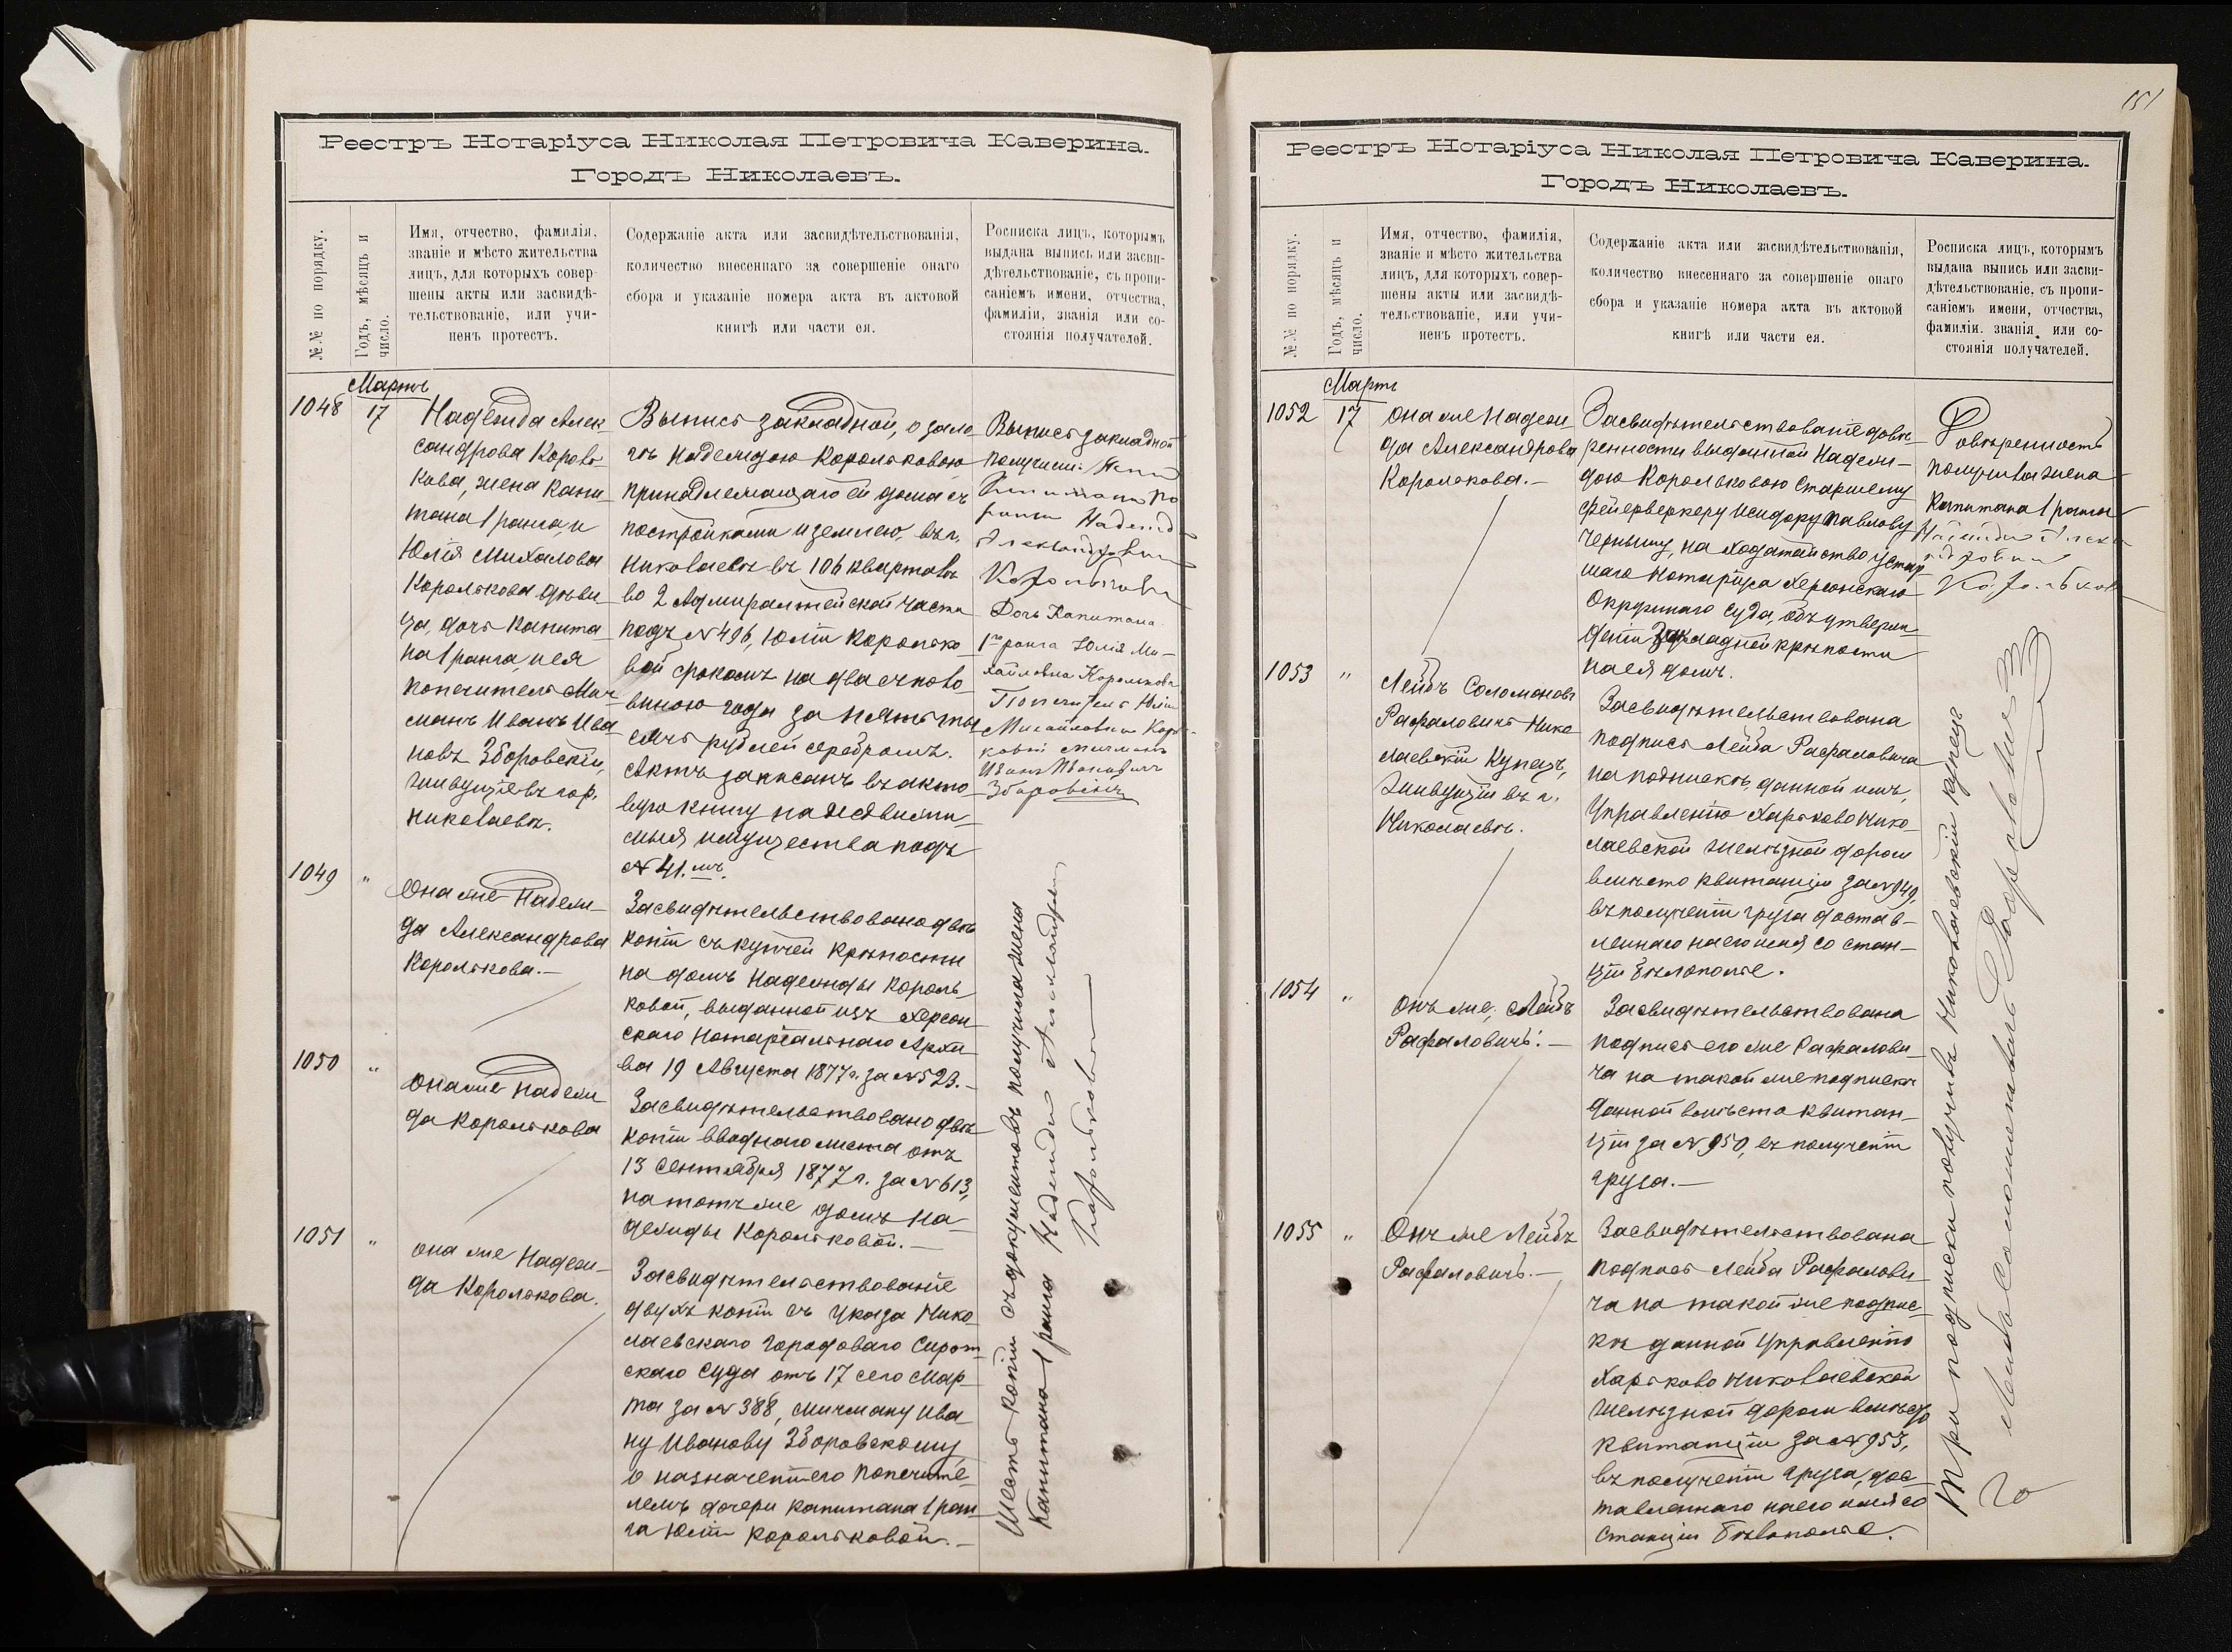 Реестръ Нотаріуса Николая Петровича Каверина.
Городъ Николаевъ.
№.№ по порядку.
Годъ, мѣсяцъ и
число.
Имя, отчество, фамилія,
званіе и мѣсто жительства
лицъ, для которыхъ совер-
шены акты или засвидѣ-
тельствованіе, или учи-
ненъ протестъ.
Содержаніе акта или засвидѣтельствованія,
количество внесеннаго за совершеніе онаго
сбора и указаніе номера акта въ актовой
книгѣ или части ея.
Росписка лицъ, которымъ
выдана выпись или засви-
дѣтельствованіе, съ пропи-
саніемъ имени, отчества,
фамиліи, званія или со-
стоянія получателей.
Мартъ
1048
17
Надежда Алек-
сандрова Король-
кова, жена Капи-
тана 1 ранга, и
Юлія Михаилова
Королькова дѣви-
ца, дочь Капита-
на 1 ранга, и ея
попечитель Мич-
манъ Иванъ Ива-
новъ Зборовскій,
живущіе въ гор.
Николаевѣ.
Выпись закладной, о зало-
гѣ Надеждою Корольковою
принадлежащаго ей дома съ
постройками и землею, въ г.
Николаевѣ въ 106 кварталѣ
во 2 Адмиралтейской части
подъ № 496, Юліи Королько-
вой срокомъ на два съ поло-
виною года за пять ты-
сячъ рублей серебромъ.
Актъ записанъ въ акто-
вую книгу на недвижи-
мыя имущества подъ
№ 41.мъ.
Выпись закладной
получили: Жена
Капитана 1го
ранга Надежда
Александровна
Королькова
Дочь Капитана
1го ранга Юлія Ми-
хайловна Королькова
Попечитель Юліи
Михайловны Король-
ковой мичманъ
Иванъ Ивановичъ
Зборовскій
1049
"
Она же Надеж-
да Александрова
Королькова.-
Засвидѣтельствовано двѣ
копіи съ купчей крѣпости
на домъ Надежды Король-
ковой, выданной изъ Херсон-
скаго Нотаріальнаго Архи-
ва 19 Августа 1877 г. за № 523.-
1050
"
Она же Надеж-
да Королькова
Засвидѣтельствовано двѣ
копіи вводнаго листа отъ
13 Сентября 1877 г. за № 613,
на тотъ же домъ На-
дежды Корольковой.-
1051
"
Она же Надеж-
да Королькова.
Засвидѣтельствованіе
двухъ копій съ указа Нико-
лаевскаго Городоваго Сирот-
скаго Суда отъ 17 сего Мар-
та за № 388, мичману Ива-
ну Иванову Зборовскому
о назначеніи его попечите-
лемъ дочери капитана 1 ран-
га Юліи Корольковой.-
Шесть копій съ документовъ получила жена
Капитана 1 ранга Надежда Александровна
Королькова
151
Реестръ Нотаріуса Николая Петровича Каверина.
Городъ Николаевъ.
№.№ по порядку.
Годъ, мѣсяцъ и
число.
Имя, отчество, фамилія,
званіе и мѣсто жительства
лицъ, для которыхъ совер-
шены акты или засвидѣ-
тельствованіе, или учи-
ненъ протестъ.
Содержаніе акта или засвидѣтельствованія,
количество внесеннаго за совершеніе онаго
сбора и указаніе номера акта въ актовой
книгѣ или части ея.
Росписка лицъ, которымъ
выдана выпись или засви-
дѣтельствованіе, съ пропи-
саніемъ имени, отчества,
фамиліи, званія или со-
стоянія получателей.
Мартъ
1052
17
Она же Надеж-
да Александрова
Королькова.-
Засвидѣтельствованіе довѣ-
ренности выданной Надеж-
дою Корольковою Старшему
фейерверкеру Исидору Павлову
Чернышу, на ходатайство у стар-
шаго нотаріуса Херсонскаго
Окружнаго Суда, объ утверж-
деніи закладной крѣпости
на ея домъ.
Довѣренность
получила жена
Капитана 1 ранга
Надежда Алекса-
ндровна
Королькова
1053
"
Лейбъ Соломоновъ
Рафаловичъ Нико-
лаевскій Купецъ,
живущій въ г.
Николаевѣ.
Засвидѣтельствована
подпись Лейба Рафаловича
на подпискѣ, данной имъ,
Управленію Харьково Нико-
лаевской желѣзной дороги
вмѣсто квитанціи за № 949,
въ полученіи груза достав-
леннаго на его имя со стан-
ціи Бѣлополье.
1054
"
Онъ же, Лейбъ
Рафаловичъ.-
Засвидѣтельствована
подпись его же Рафалови-
ча на такой же подпискѣ
данной вмѣсто квитан-
ціи за № 950, въ полученіи
груза.-
1055
"
Онъ же Лейбъ
Рафаловичъ.-
Засвидѣтельствована
подпись Лейба Рафалови-
ча на такой же подпис-
кѣ данной Управленію
Харьково Николаевской
желѣзной дороги вмѣсто
квитанціи за № 953,
въ полученіи груза, дос-
тавленнаго на его имя со
станціи Бѣлополье.
Три подписки получилъ Николаевскій купецъ
Лейбъ Соломоновичъ Рафаловичъ